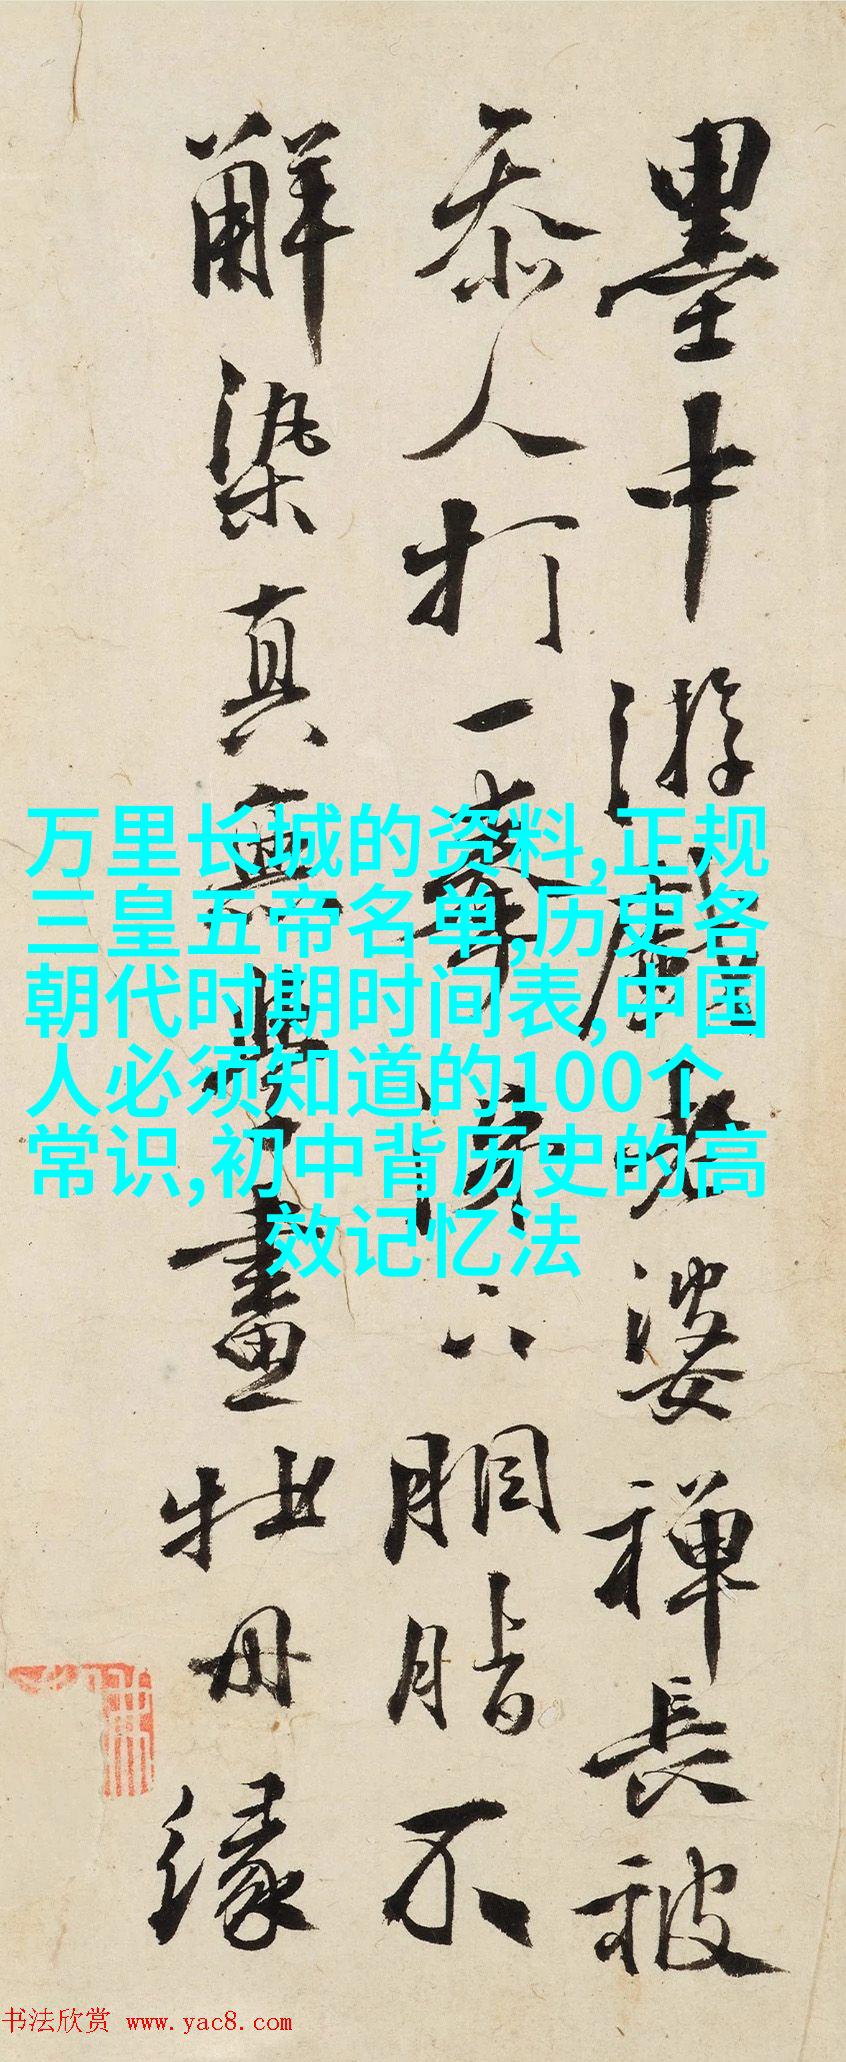 墨中游戲老婆禪長被
参人打一拳涕下胭脂不
解染真無學畫牡丹緣
万里长城的资料,正规
三皇五帝名单,历史各
朝代时期时间表,中国
人必须知道的100个
常识,初中背历史的高
效记忆法
书法欣赏 www.yac8.com